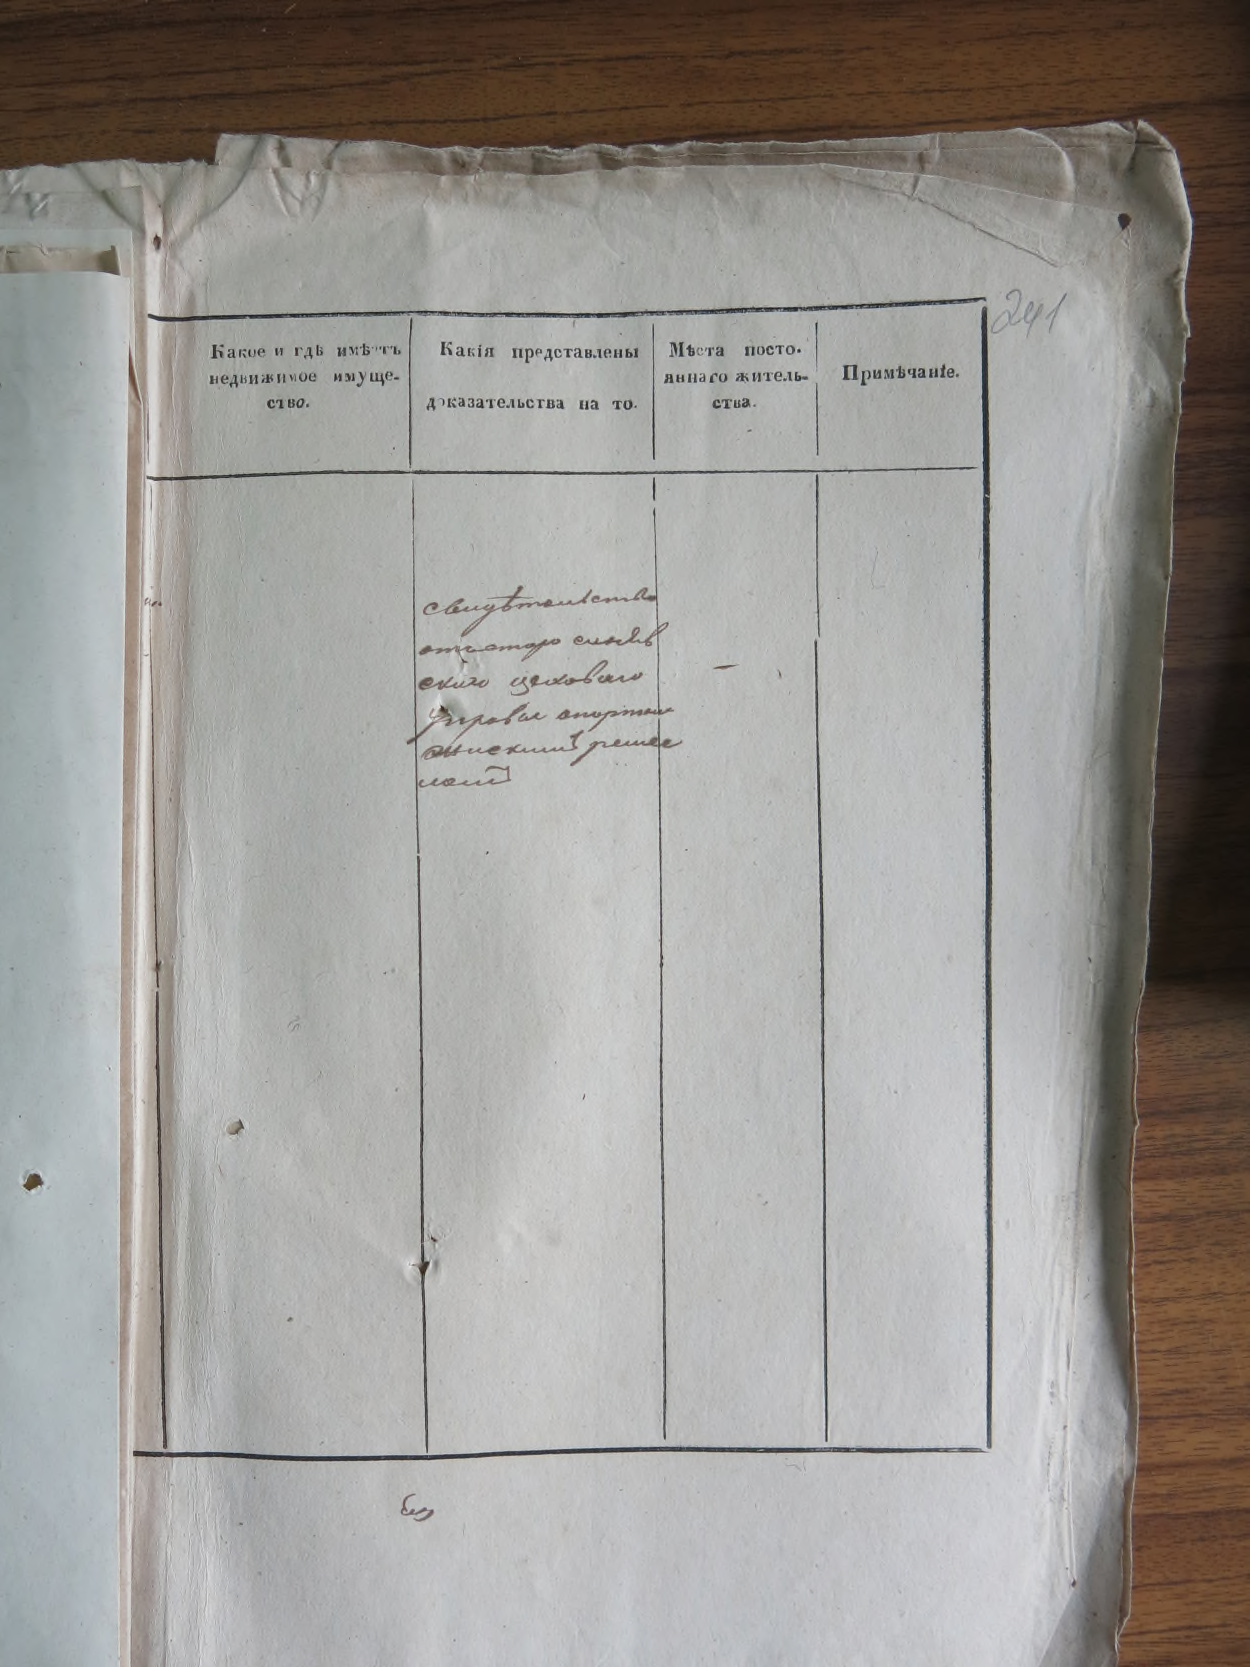 241
Какое и гдѣ имѣетъ
недвижимое имуще-
ство.
Какія представлены
доказательства на то.
Мѣста посто-
яннаго житель-
ства.
Примѣчаніе.
свидѣтельство
отъ старо синяв
ского цеховаго
управы
ремес